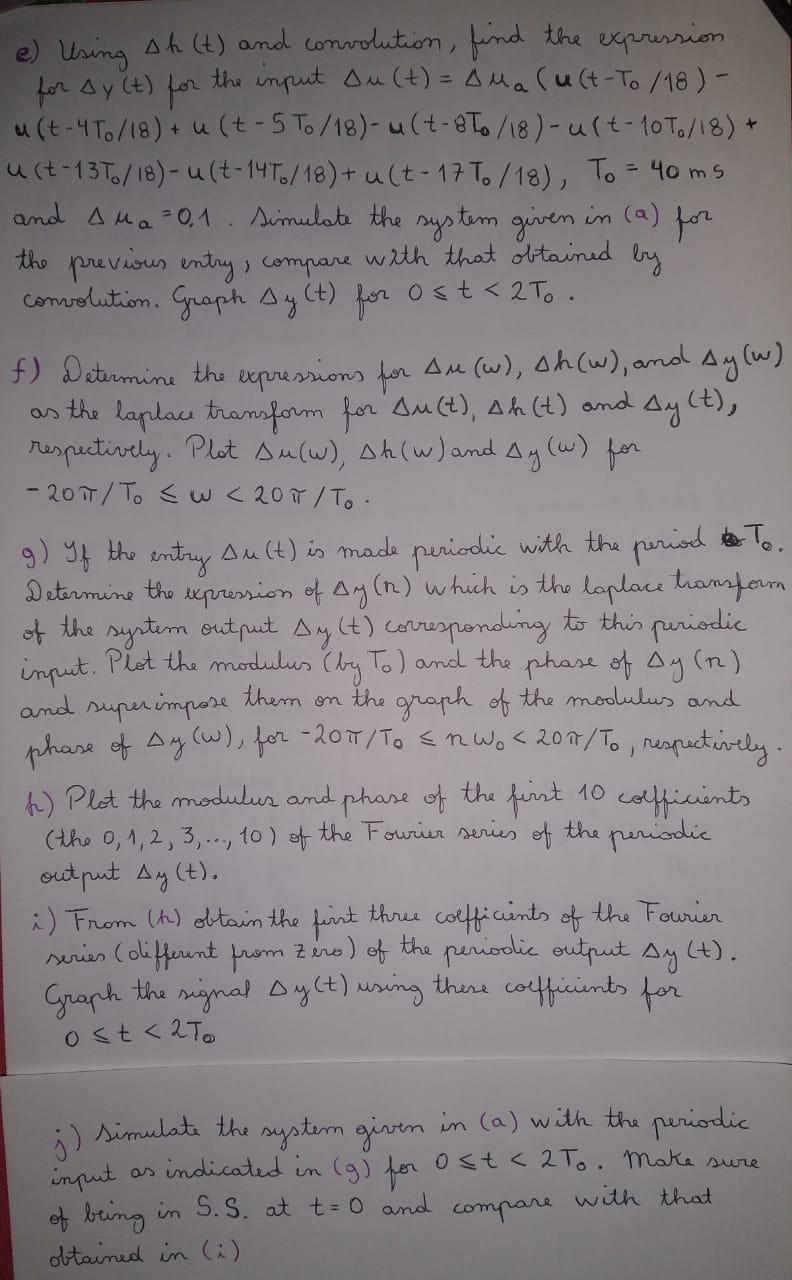 e) Using Δh(t) and convolution, find the expression
for Δy(t) for the input Δu(t) = Δua(u(t-To/18) -
u(t-4To/18) + u(t-5To/18) - u(t-8To/18) - u(t-10To/18) +
u(t-13To/18) - u(t-14To/18) + u(t-17To/18), To = 40 ms
and Δua = 0,1. Simulate the system given in (a) for
the previous entry, compare with that obtained by
convolution. Graph Δy(t) for 0 ≤ t < 2To.
f) Determine the expressions for Δu(w), Δh(w), and Δy(w)
as the laplace transform for Δu(t), Δh(t) and Δy(t),
respectively. Plot Δu(w), Δh(w) and Δy(w) for
-20π/To ≤ w < 20π/To.
g) If the entry Δu(t) is made periodic with the period To.
Determine the expression of Δy(n) which is the laplace transform
of the system output Δy(t) corresponding to this periodic
input. Plot the modulus (by To) and the phase of Δy(n)
and superimpose them on the graph of the modulus and
phase of Δy(w), for -20π/To ≤ nwo < 20π/To, respectively.
h) Plot the modulus and phase of the first 10 coefficients
(the 0,1,2,3,...,10) of the Fourier series of the periodic
output Δy(t).
i) From (h) obtain the first three coefficients of the Fourier
series (different from zero) of the periodic output Δy(t).
Graph the signal Δy(t) using these coefficients for
0 ≤ t < 2To
j) Simulate the system given in (a) with the periodic
input as indicated in (g) for 0 ≤ t < 2To. Make sure
of being in S.S. at t=0 and compare with that
obtained in (i)